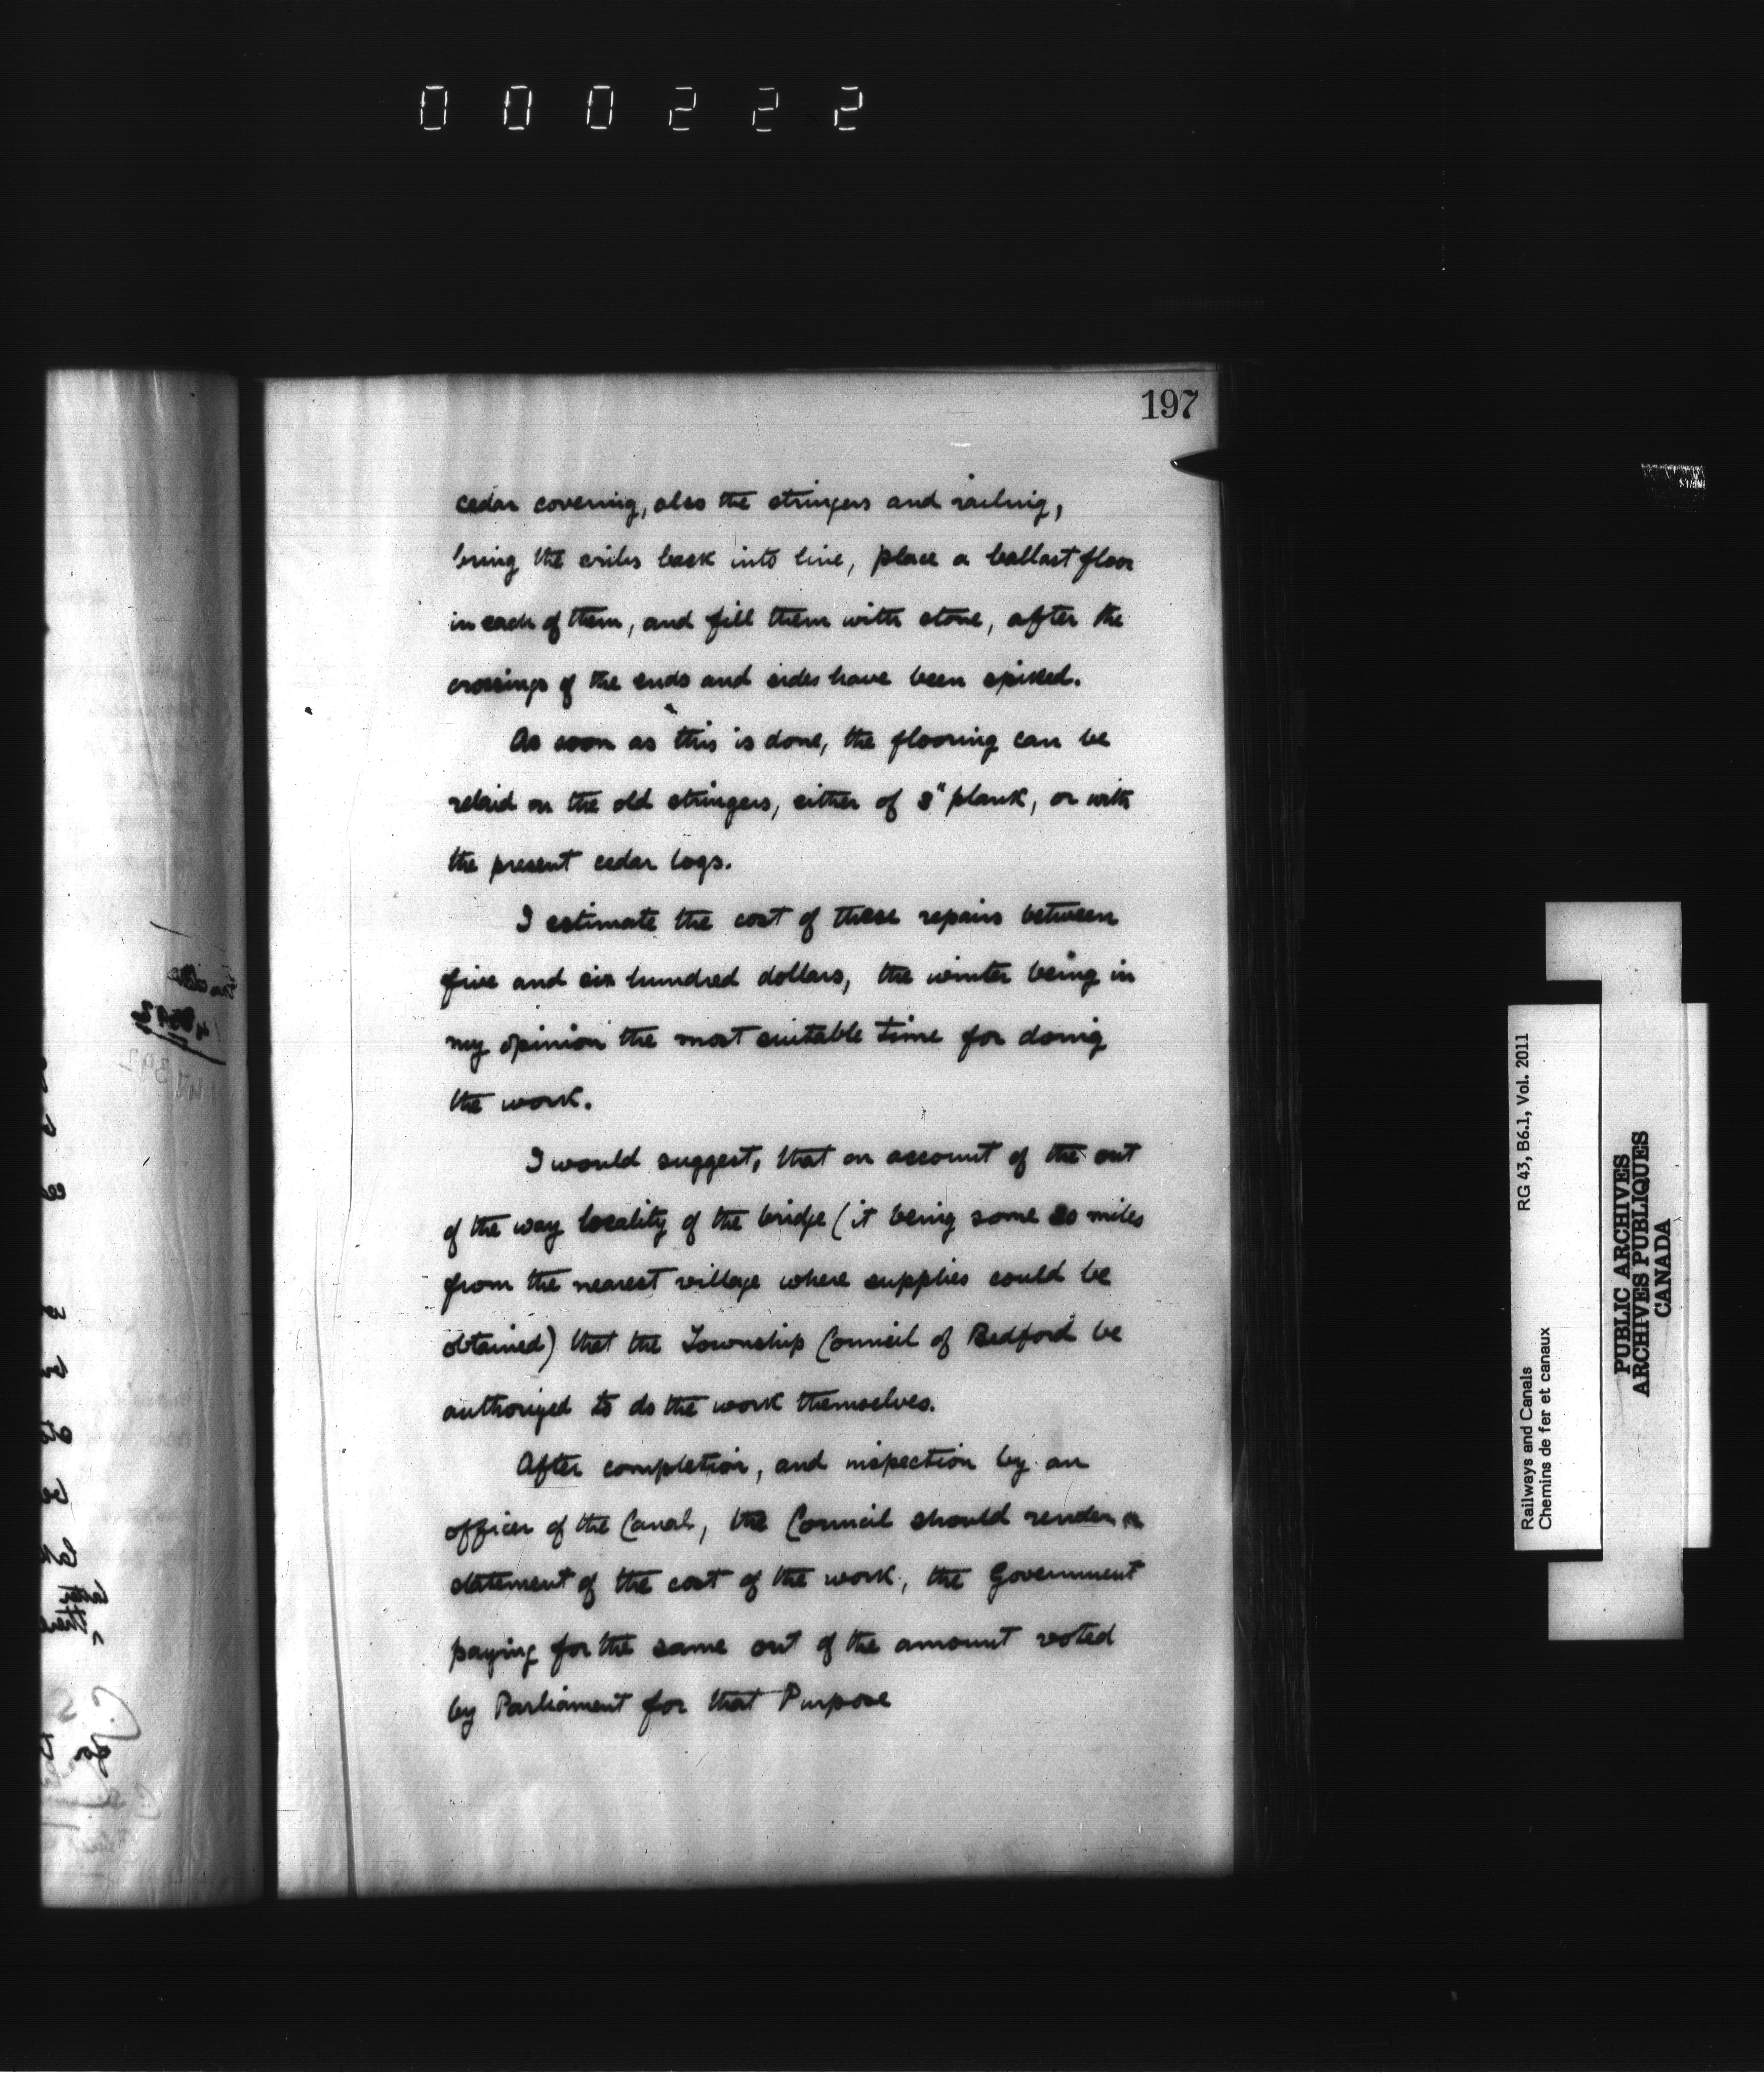 000222
197
cedar covering, also the stringers and railing,
bring the cribs back into line, place a ballast floor
in each of them, and fill them with stone, after the
crossings of the ends and sides have been spiked.
As soon as this is done, the flooring can be
relaid on the old stringers, either of 3" plank, or with
the present cedar logs.
I estimate the cost of these repairs between
five and six hundred dollars, the winter being in
my opinion the most suitable time for doing
the work.
I would suggest, that on account of the out
of the way locality of the bridge (it being some 20 miles
from the nearest village where supplies could be
obtained) that the Township Council of Bedford be
authorized to do the work themselves.
After completion, and inspection by an
officer of the Canal, the Council should render a
statement of the cost of the work, the Government
paying for the same out of the amount voted
by Parliament for that Purpose
Railways and Canals
Chemins de fer et canaux
RG 43, B6.1, Vol. 2011
PUBLIC ARCHIVES
ARCHIVES PUBLIQUES
CANADA